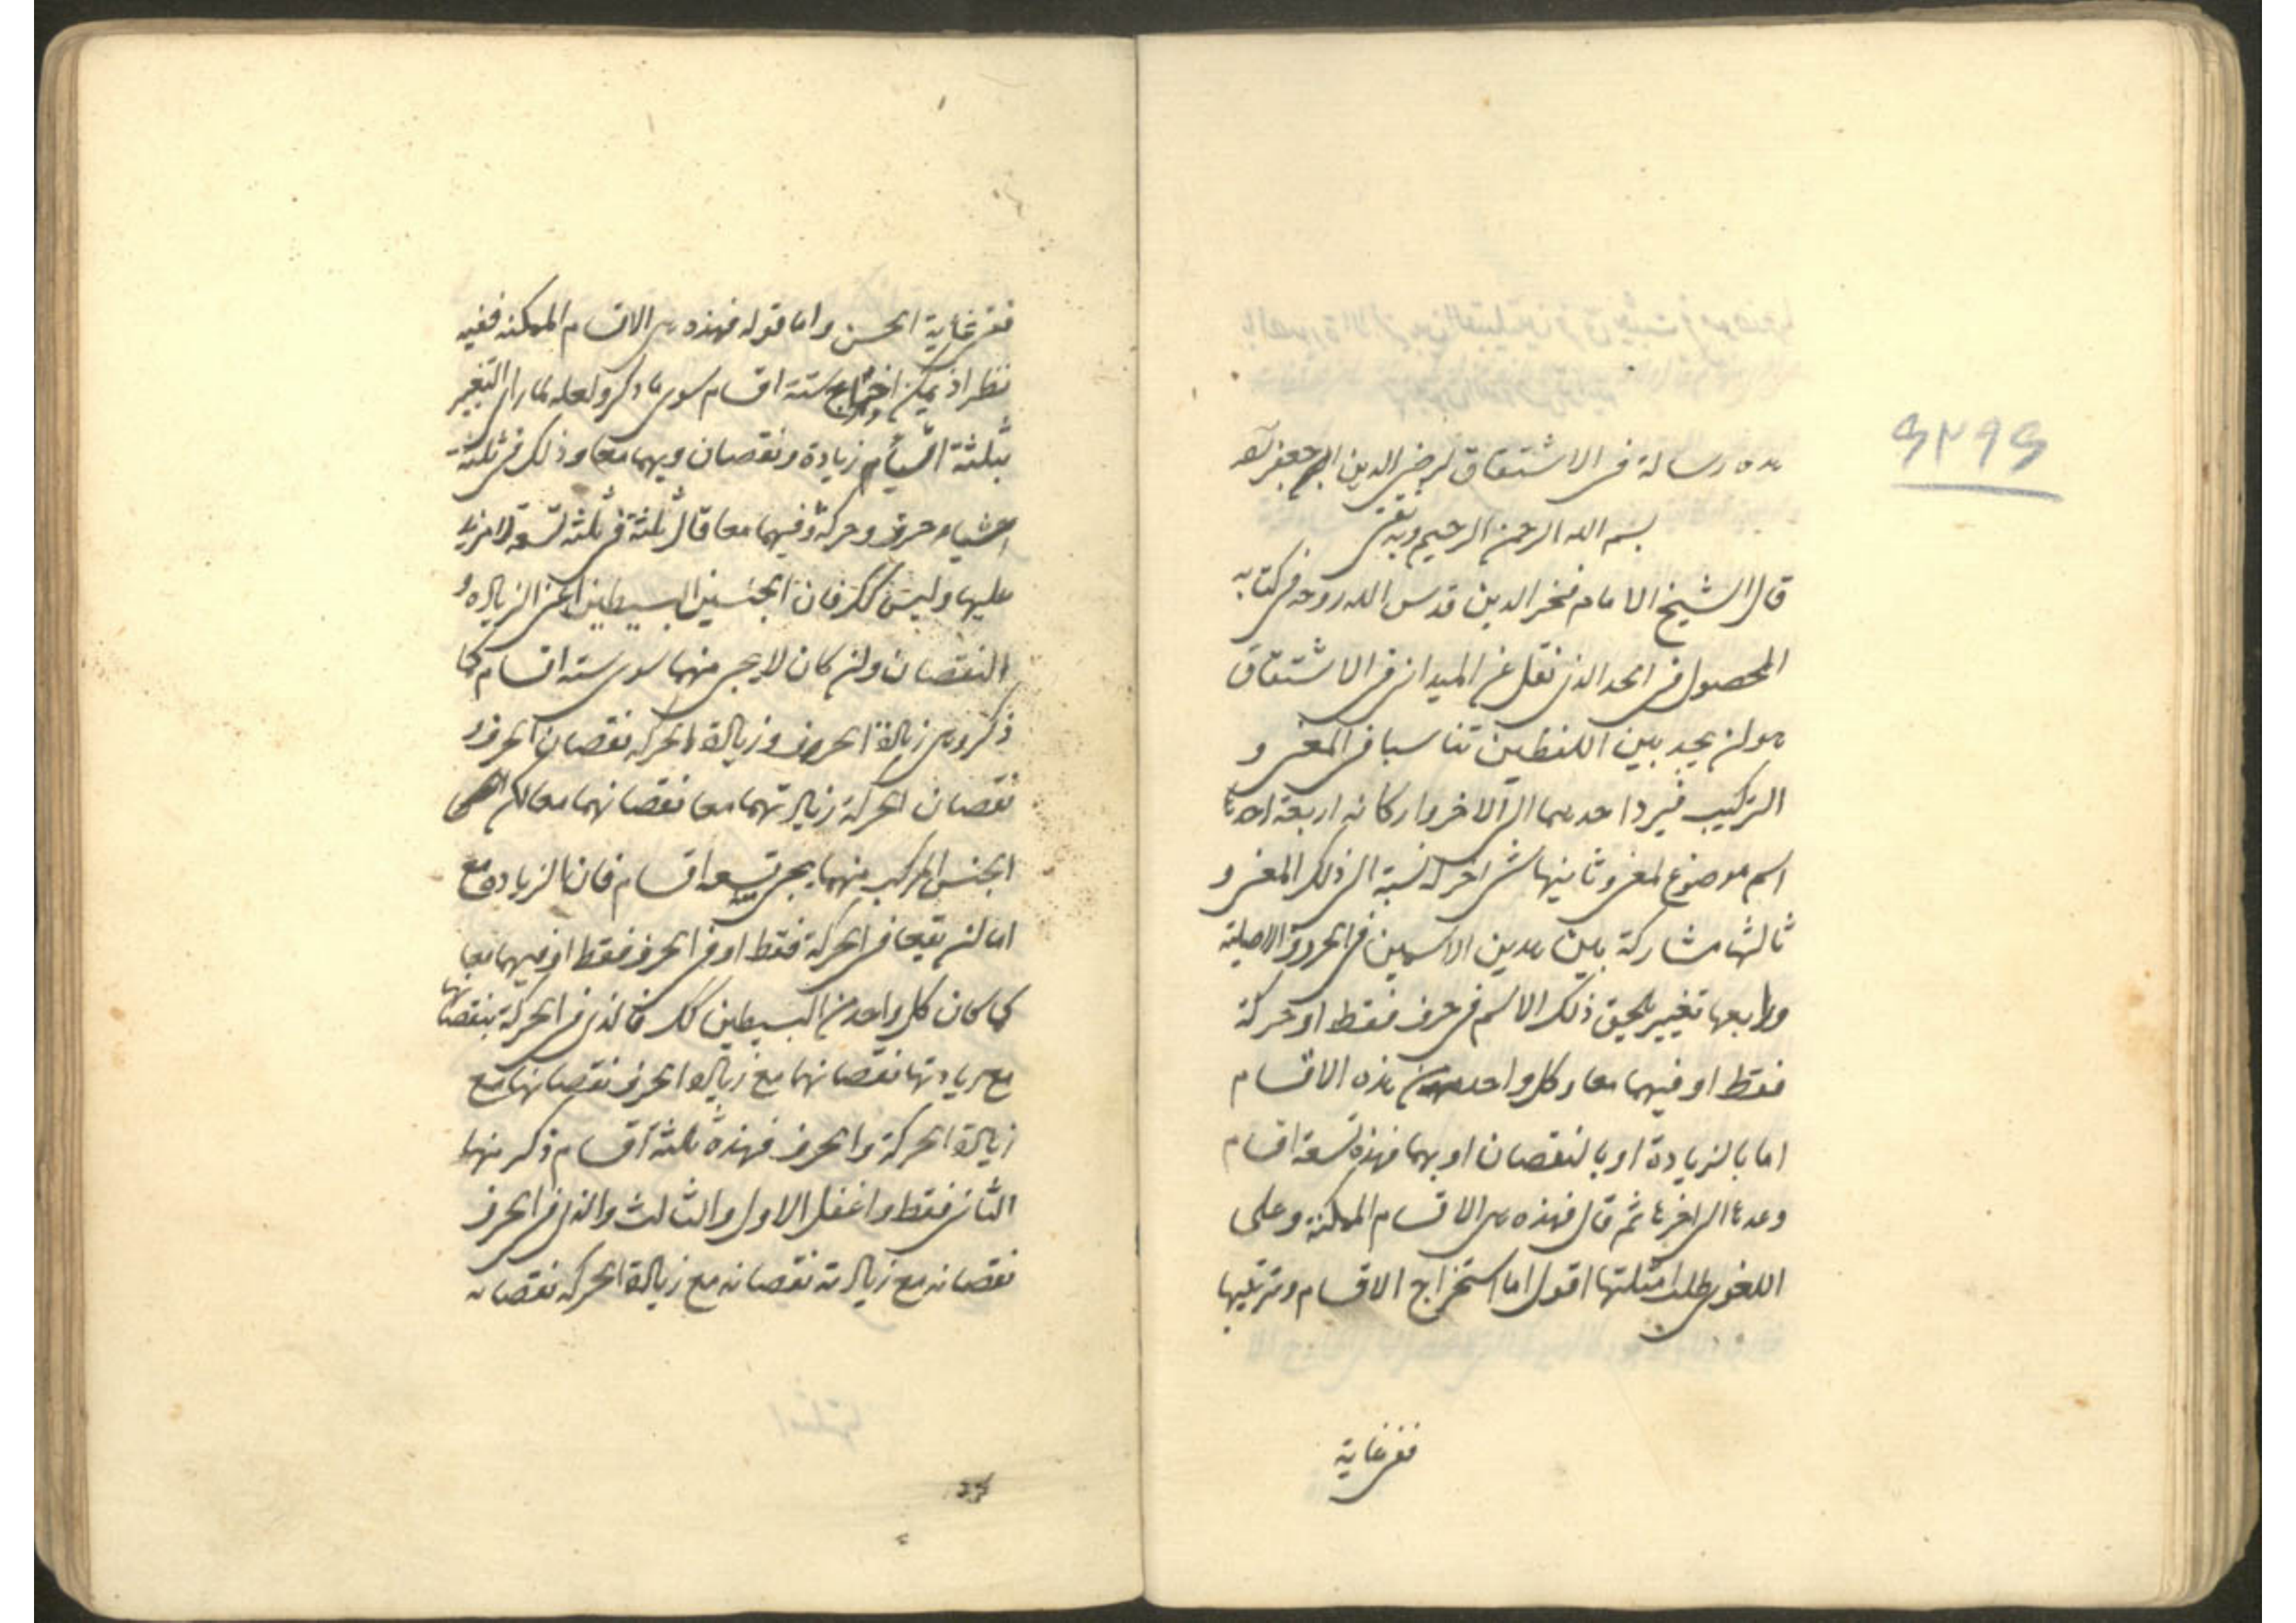 هذه رسالة فى الاشتقاق لرضى الدين ابى جعفر
بسم الله الرحمن الرحيم وبه ثقتى
قال الشيخ الامام فخر الدين قدس الله روحه فى كتابه
المحصول فى الحد الذى نقل عن الميدانى فى الاشتقاق
هو ان يجد بين اللفظين تناسبا فى المعنى و
التركيب فيرد احدهما الى الاخر واركانه اربعة احدها
اسم موضوع لمعنى وثانيها شئ اخر له نسبة الى ذلك المعنى و
ثالثها مشاركة بين هذين الاسمين فى الحروف الاصلية
ورابعها تغيير يلحق ذلك الاسم فى حرف فقط او حركة
فقط او فيهما معا وكل واحد من هذه الاقسام
اما بالزيادة او بالنقصان او بهما فهذه تسعة اقسام
وعدها الى اخرها ثم قال فهذه هى الاقسام الممكنة وعلى
اللغوى طلب امثلتها اقول اما استخراج الاقسام وترتيبها
ففى غاية
ففى غاية الحسن واما قوله فهذه هى الاقسام الممكنه ففيه
نظر اذ يمكن اخراج ستة اقسام سوى ما ذكر ولعله لما راى التغيير
بثلثة اقسام زيادة ونقصان وبهما معا وذلك فى ثلثة
اشياء حرف وحركة وفيهما معا قال ثلثة فى ثلثه تسعة لا مزيد
عليها وليس كك فان الجنسين البسيطين اعنى الزياده و
النقصان وان كان لا يجئ منهما سوى سته اقسام كما
ذكر وهى زيادة الحروف وزيادة الحركه نقصان الحرف و
نقصان الحركة زيادتهما معا نقصانهما معا لكن
الجنس المركب منهما يجئ تسعه اقسام فان الزياده مع
اما ان يقعا فى الحركة فقط او فى الحرف فقط او فيهما معا
كما كان كل واحد من البسيطين كك فالذى فى الحركة بنقصانها
مع زيادتها نقصانهما مع زيادة الحرف نقصانها مع
زيادة الحركة والحرف فهذه ثلثة اقسام ذكر منها
الثانى فقط واغفل الاول والثالث والذى فى الحرف
نقصانه مع زيادته نقصانه مع زيادة الحركه نقصانه